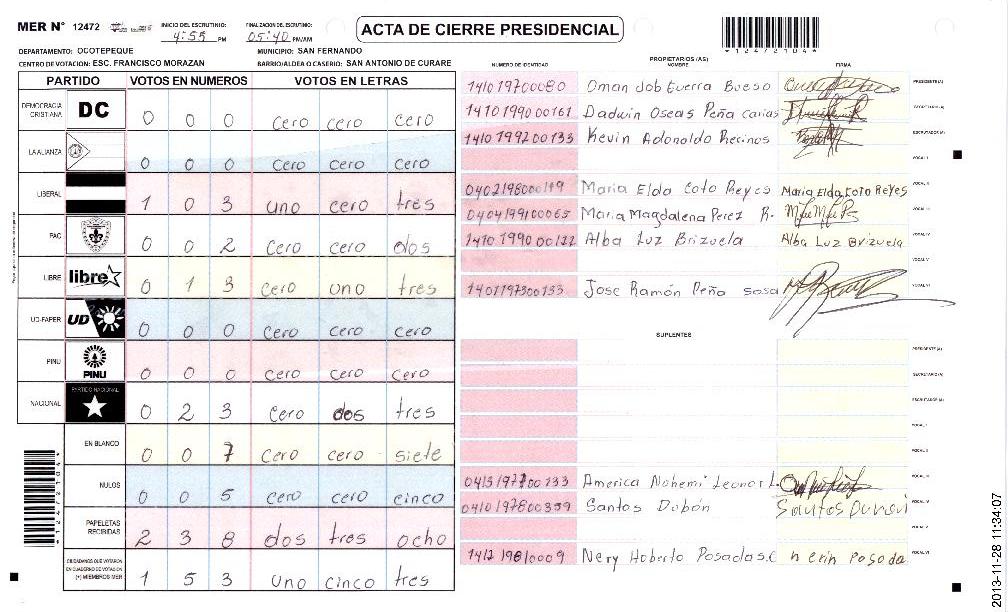 MER N° 12472
INICIO DEL ESCRUTINIO: 4:55 PM
FINALIZACION DEL ESCRUTINIO: 05:40 PM/AM
ACTA DE CIERRE PRESIDENCIAL
*12472104*
DEPARTAMENTO: OCOTEPEQUE
MUNICIPIO: SAN FERNANDO
CENTRO DE VOTACION: ESC. FRANCISCO MORAZAN
BARRIO/ALDEA O CASERIO: SAN ANTONIO DE CURARE
PARTIDO VOTOS EN NUMEROS VOTOS EN LETRAS
DEMOCRACIA CRISTIANA DC 0 0 0 cero cero cero
LA ALIANZA 0 0 0 cero cero cero
LIBERAL 1 0 3 uno cero tres
PAC 0 0 2 cero cero dos
LIBRE libre 0 1 3 cero uno tres
UD-FAPER UD 0 0 0 cero cero cero
PINU PINU 0 0 0 cero cero cero
NACIONAL PARTIDO NACIONAL 0 2 3 cero dos tres
EN BLANCO 0 0 7 cero cero siete
NULOS 0 0 5 cero cero cinco
PAPELETAS RECIBIDAS 2 3 8 dos tres ocho
CIUDADANOS QUE VOTARON EN CUADERNO DE VOTACION (+) MIEMBROS MER 1 5 3 uno cinco tres
PROPIETARIOS (AS)
NUMERO DE IDENTIDAD NOMBRE FIRMA
1410199000161 Dadwin Oseas Peña Carias SECRETARIO (A)
1410199200133 Kevin Adonaldo Recinos ESCRUTADOR (A)
VOCAL I
0402198000119 Maria Elda Coto Reyes Maria Elda Coto Reyes VOCAL II
0404199100065 Maria Magdalena Perez R. VOCAL III
1410199000122 Alba Luz Brizuela Alba Luz Brizuela VOCAL IV
VOCAL V
1401197300133 Jose Ramón Peña sosa VOCAL VI
SUPLENTES
PRESIDENTE (A)
SECRETARIO (A)
ESCRUTADOR (A)
VOCAL I
VOCAL II
America Nohemi Leonor L. VOCAL III
0410197800359 Santos Dubón VOCAL IV
VOCAL V
Nery Hoberto Posada VOCAL VI
2013-11-28 11:34:07